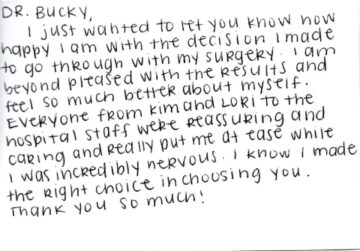 DR. BUCKY,
I just wanted to let you know how
happy I am with the decision I made
to go through with my surgery. I am
beyond pleased with the results and
feel so much better about myself.
Everyone from Kim and Lori to the
hospital staff were reassuring and
caring and really put me at ease while
I was incredibly nervous. I know I made
the right choice in choosing you.
Thank you so much!